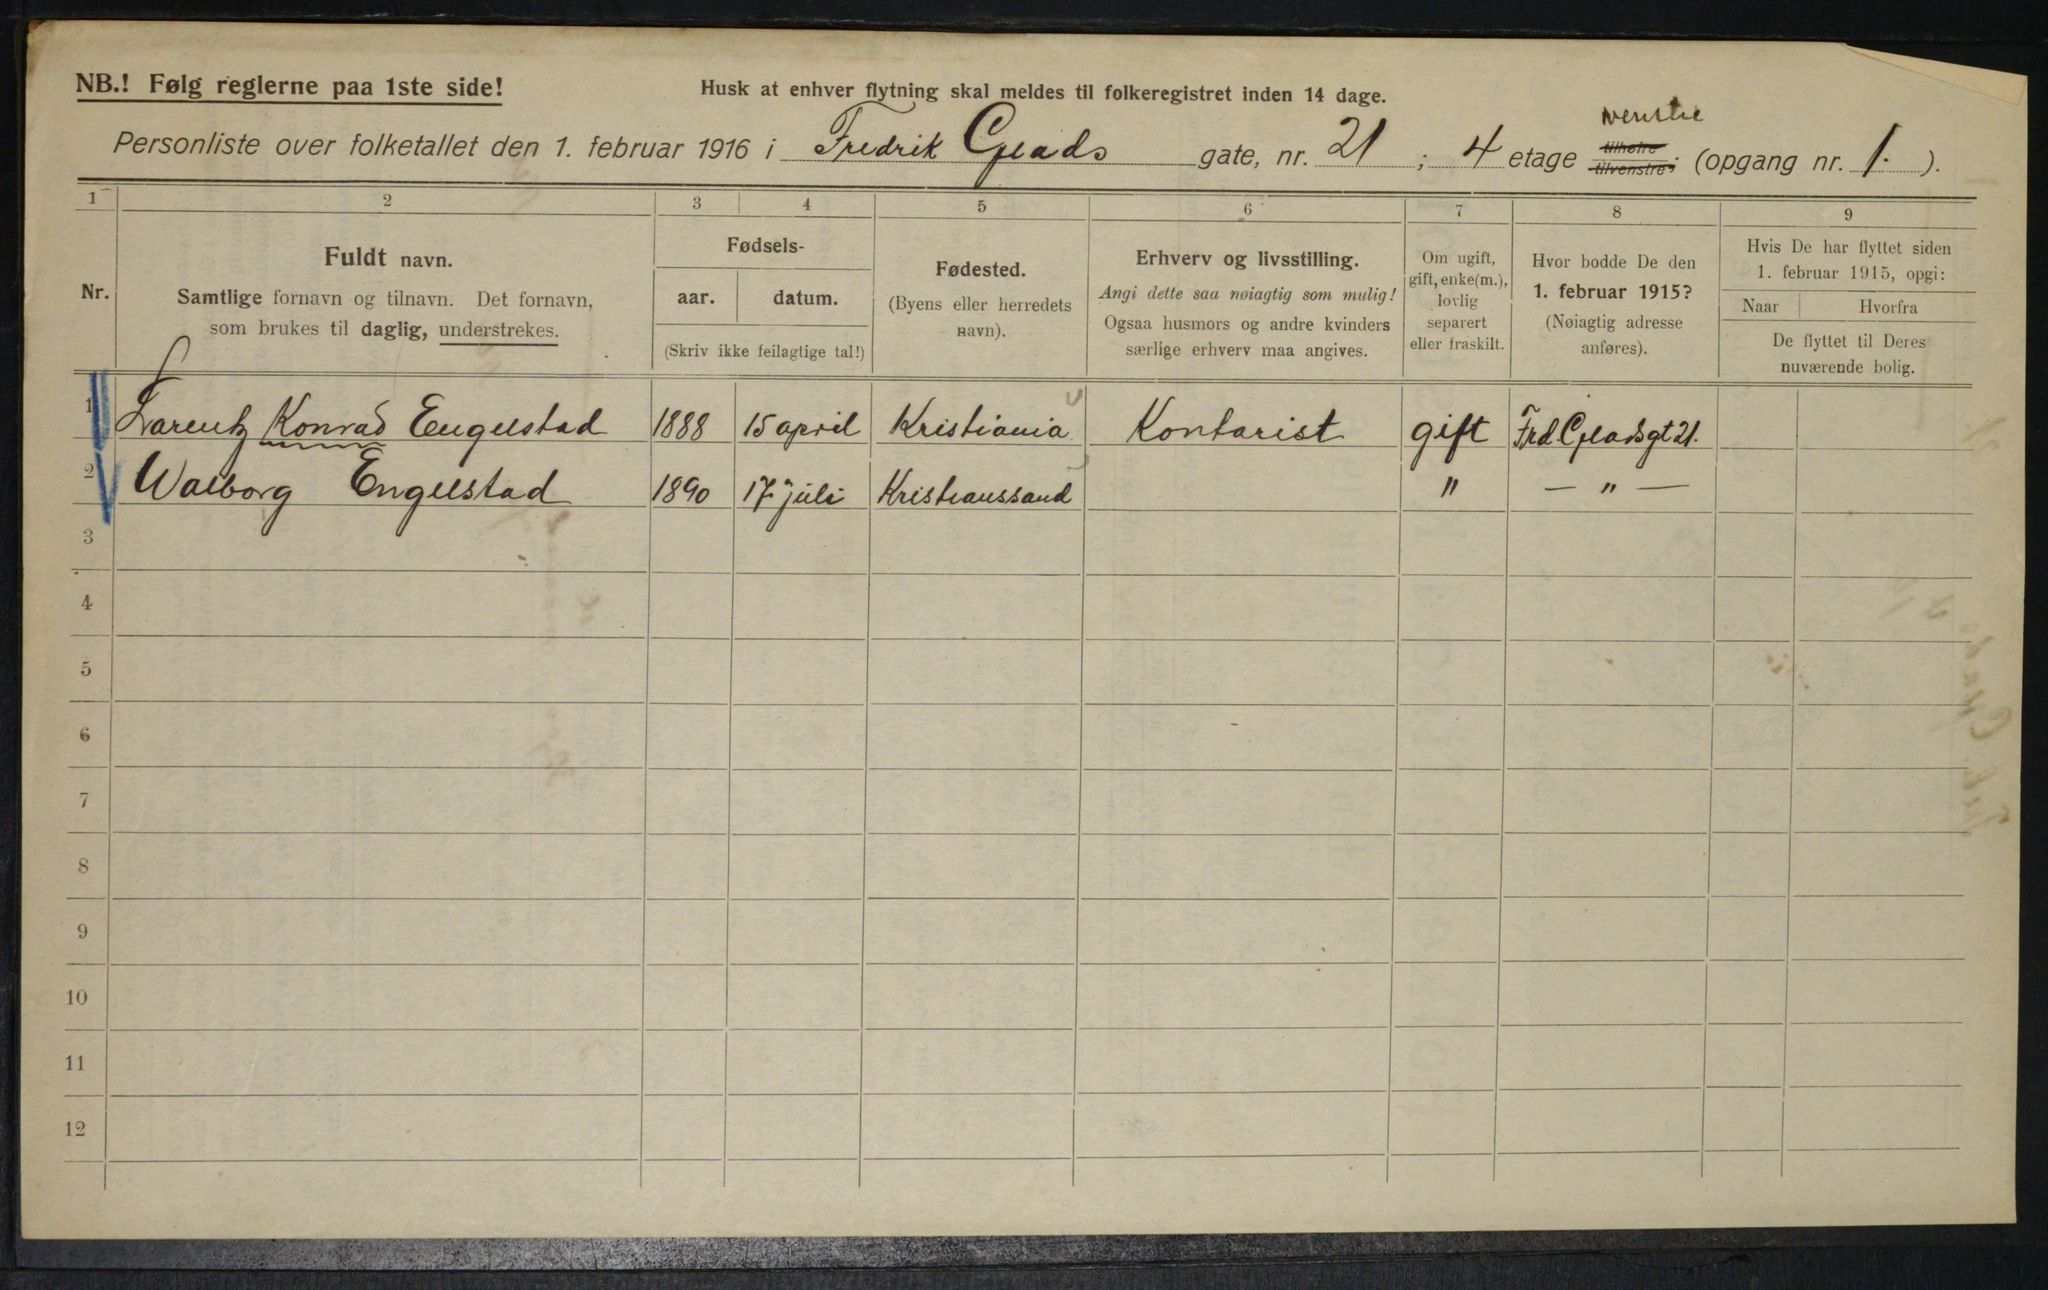 NB.! Følg reglerne paa 1ste side!
Husk at enhver flytning skal meldes til folkeregistret inden 14 dage.
venstre
Personliste over folketallet den 1. februar 1916 i Fredrik Gjeads gate, nr. 21 ; 4 etage tilhøire tilvenstre; (opgang nr. 1. ).
1 2 3 4 5 6 7 8 9
Nr.
Fuldt navn.
Samtlige fornavn og tilnavn. Det fornavn,
som brukes til daglig, understrekes.
Fødsels-
aar. datum.
(Skriv ikke feilagtige tal!)
Fødested.
(Byens eller herredets
navn).
Erhverv og livsstilling.
Angi dette saa nøiagtig som mulig!
Ogsaa husmors og andre kvinders
særlige erhverv maa angives.
Om ugift,
gift, enke(m.),
lovlig
separert
eller fraskilt.
Hvor bodde De den
1. februar 1915?
(Nøiagtig adresse
anføres).
Hvis De har flyttet siden
1. februar 1915, opgi:
Naar Hvorfra
De flyttet til Deres
nuværende bolig.
1 Larentz Konrad Engelstad 1888 15 april Kristiania Kontorist gift Frd. Gjeadsgt 21.
2 Walborg Engelstad 1890 17 juli Kristianssand " — " —
3
4
5
6
7
8
9
10
11
12